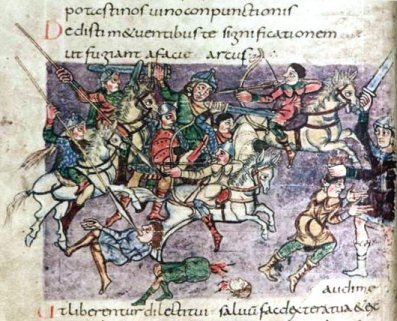 potastinos uino conpunctionis
Dedisti m&uentibus te significationem
ut fugiant afacie arcus
Ut liberentur dilecti tui saluum fac dextera tua & ex
audi me